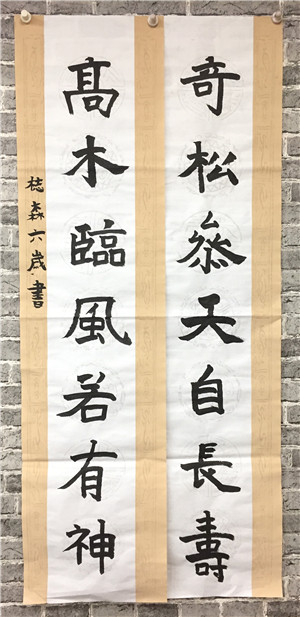 奇松叅天自長壽
髙木臨風若有神
梽森六歲書